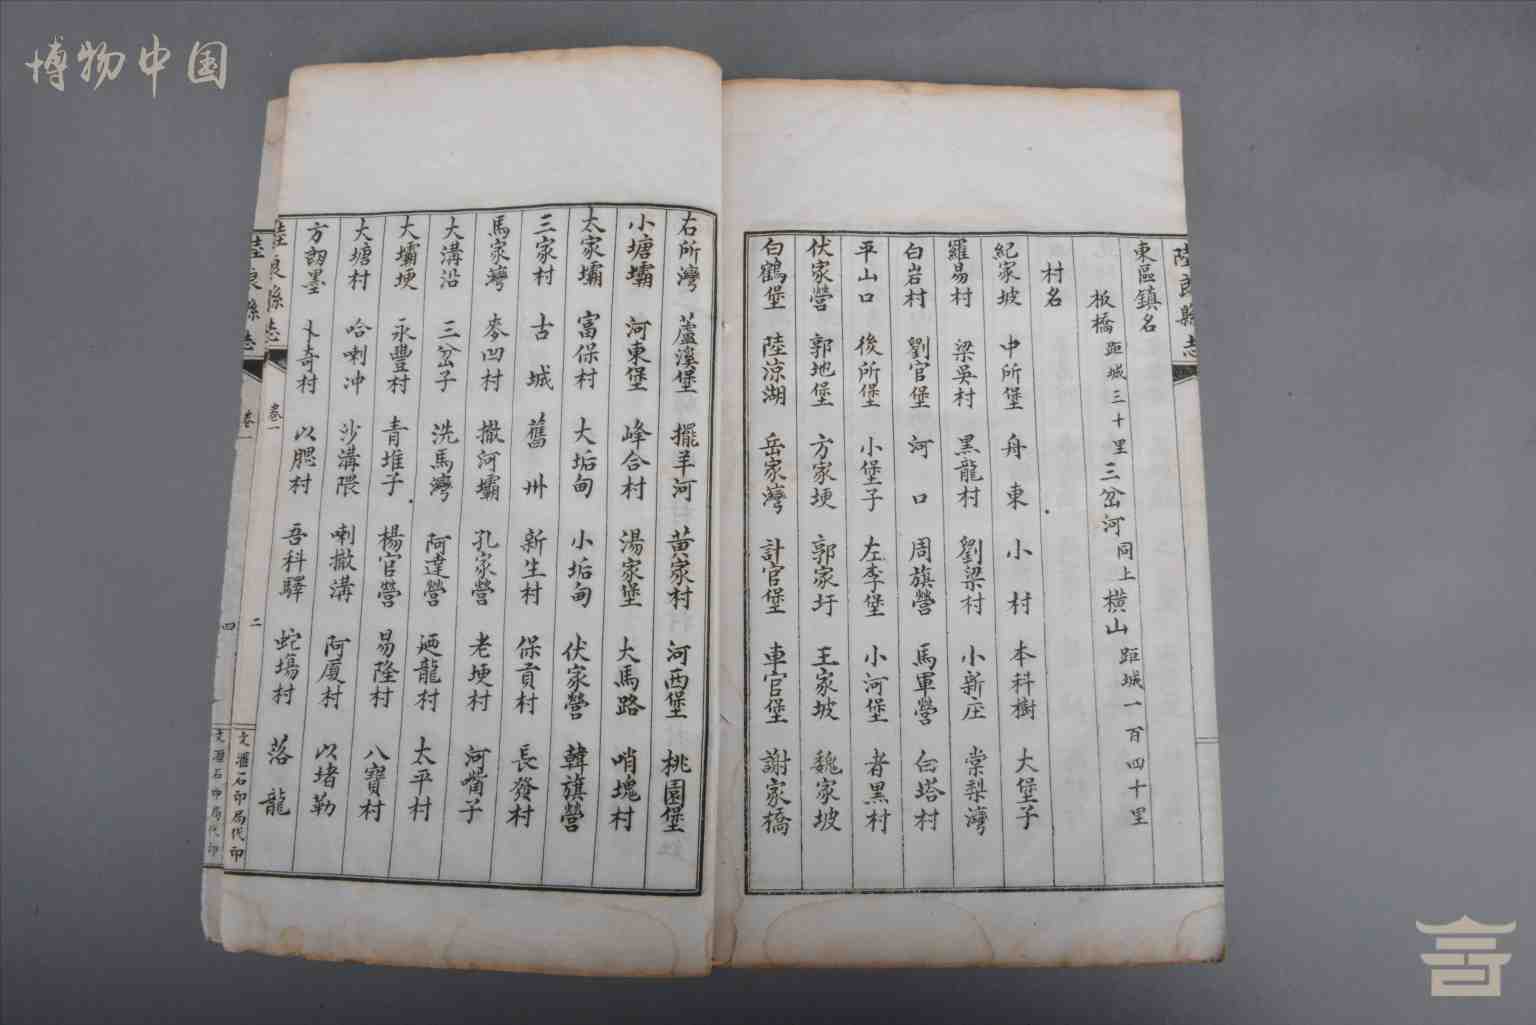 博物中国
陸良縣志
東區鎮名
板橋 距城三十里 三岔河 同上 橫山 距城一百四十里
村名
紀家坡 中所堡 舟東 小村 本科樹 大堡子
羅易村 梁吳村 黑龍村 劉梁村 小新庄 棠梨灣
白岩村 劉官堡 河口 周旗營 馬軍營 白塔村
平山口 後所堡 小堡子 左李堡 小河堡 者黑村
伏家營 郭地堡 方家埂 郭家圩 王家坡 魏家坡
白鶴堡 陸涼湖 岳家灣 計官堡 車官堡 謝家橋
右所灣 蘆溪堡 擺羊河 黃家村 河西堡 桃園堡
小塘壩 河東堡 峰合村 湯家堡 大馬路 哨塊村
太家壩 富保村 大垢甸 小垢甸 伏家營 韓旗營
三家村 古城 舊州 新生村 保貢村 長發村
馬家灣 麥凹村 撒河壩 孔家營 老埂村 河嘴子
大溝沿 三岔子 洗馬灣 阿達營 廼龍村 太平村
大壩埂 永豐村 青堆子 楊官營 易隆村 八寶村
大塘村 哈喇冲 沙溝隈 喇撒溝 阿廈村 以堵勒
方朗墨 卜奇村 以腮村 吾科驛 蛇塲村 落龍
陸良縣志 卷一 二 文滙石印局代印
陸良縣志 卷一 四 文滙石印局代印